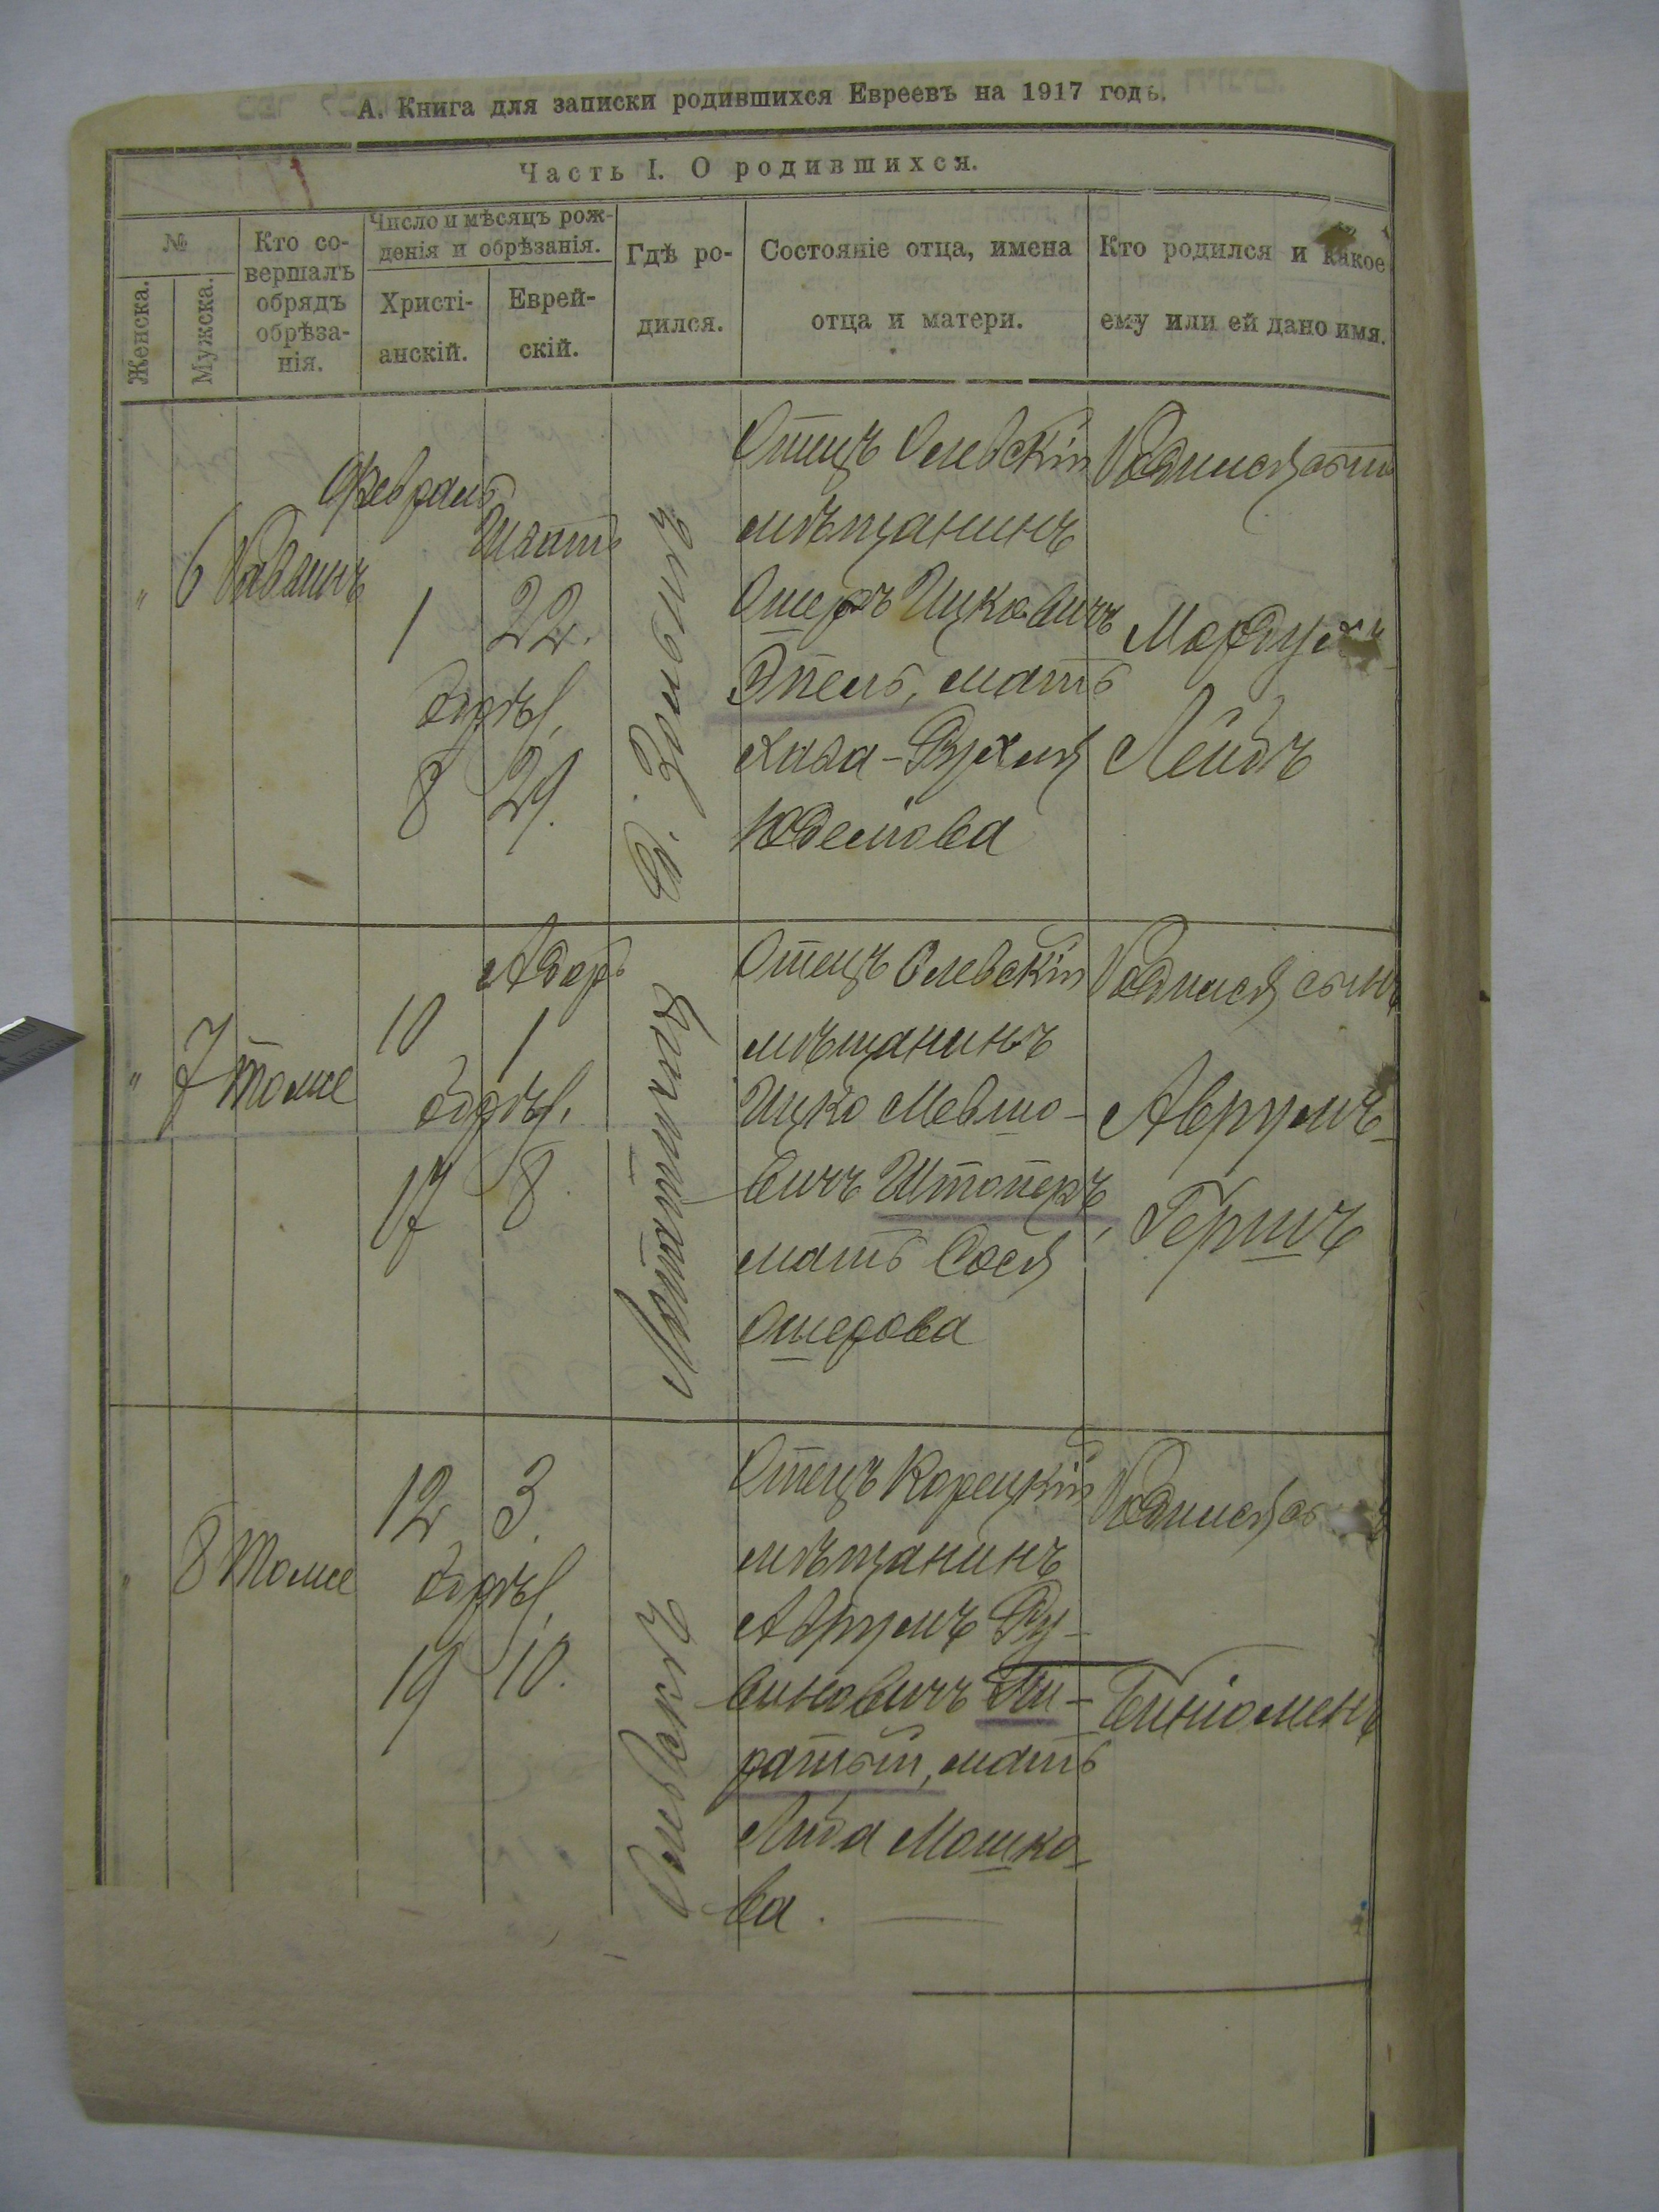 А. Книга для записки родившихся Евреевъ на 1917 годъ.
Часть I. О родившихся.
№
Женска.
Мужска.
Кто со-
вершалъ
обрядъ
обрѣза-
нія.
Число и мѣсяцъ рож-
денія и обрѣзанія.
Христі-
анскій.
Еврей-
скій.
Гдѣ ро-
дился.
Состояніе отца, имена
отца и матери.
Кто родился и какое
ему или ей дано имя.
"
6
Раввинъ
Февраль
Шватъ
1 22.
обрѣз.
8 29.
Отецъ Олевскій
мѣщанинъ
Ошеръ Ицковичъ
Эпель, мать
Хава-Рухля
Юделіова
Родился сынъ
Мордухъ-
Лейбъ
"
7
Тоже
Адаръ
10 1
обрѣз.
17 8.
Отецъ Олевскій
мѣщанинъ
Ицко Мевшо-
вичъ Штоперъ,
мать Сося
Ошерова
Родился сынъ
Аврумъ-
Гершъ
"
8
Тоже
12 3.
обрѣз.
19 10.
Олевскъ
Отецъ Корецкій
мѣщанинъ
Аврумъ Ру-
виновичъ Пи-
ратый, мать
Мошко-
ва.
Родился
Биніоменъ